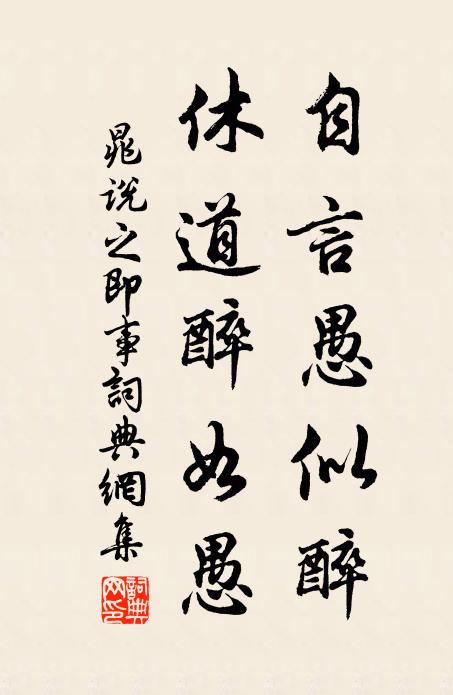 自言愚似醉
休道醉如愚
晁說之即事詞典網集
詞典网印